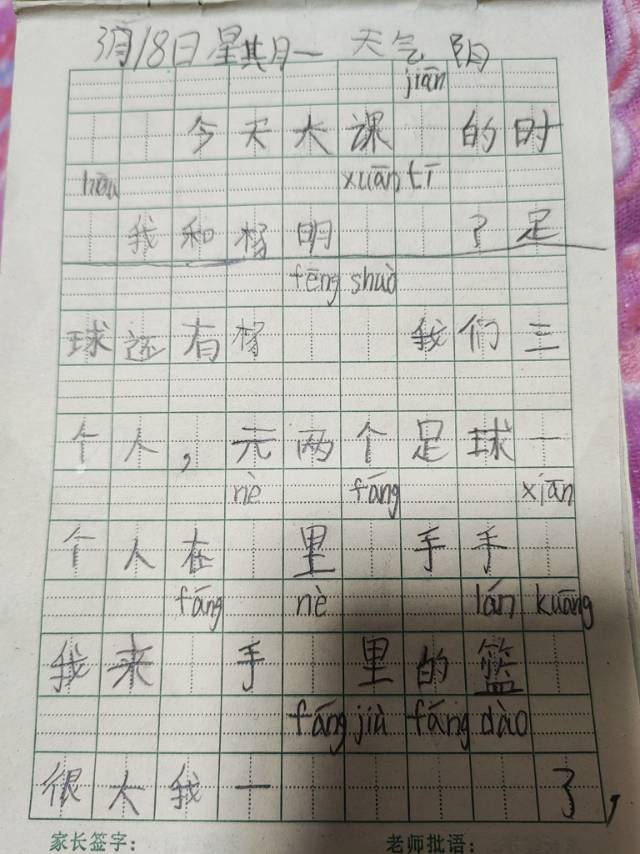 3月18日 星其月一 天气 阴
jiān
今天大课 的时
hòu xuān tī
我和杨明 了足
fēng shuò
球还有杨 我们三
个人，元两个足球一
nè fáng xiān
个人在 里 手手
fáng nè lán kuāng
我来 手 里的篮
fáng jiù fáng dào
很大我一 了，
家长签字： 老师批语：